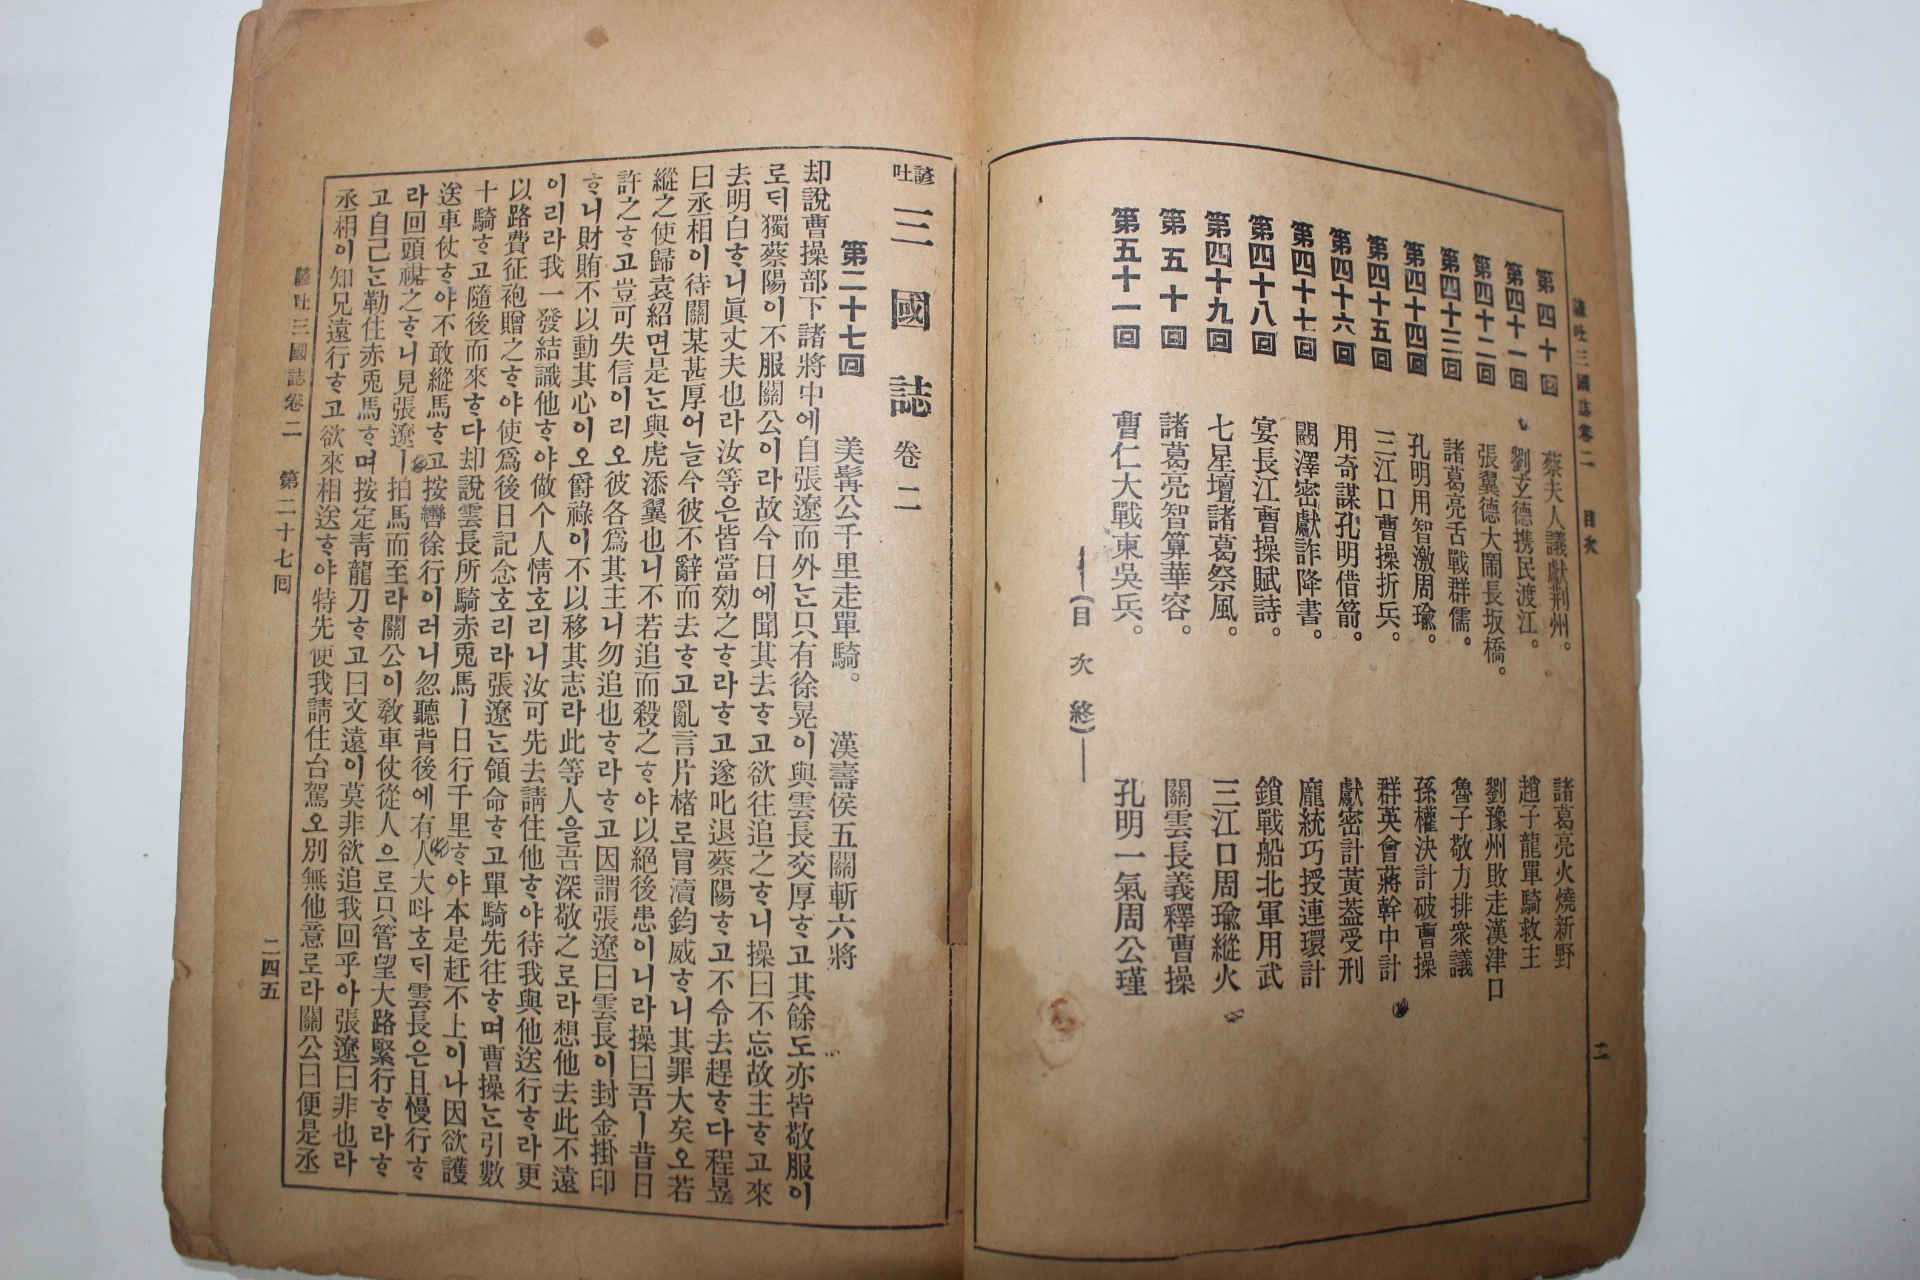 諺吐三國誌卷二 目次 二
第四十回 蔡夫人議獻荆州。 諸葛亮火燒新野
第四十一回 劉玄德携民渡江。 趙子龍單騎救主
第四十二回 張翼德大鬧長坂橋。 劉豫州敗走漢津口
第四十三回 諸葛亮舌戰群儒。 魯子敬力排衆議
第四十四回 孔明用智激周瑜。 孫權決計破曹操
第四十五回 三江口曹操折兵。 群英會蔣幹中計
第四十六回 用奇謀孔明借箭。 獻密計黃蓋受刑
第四十七回 闞澤密獻詐降書。 龐統巧授連環計
第四十八回 宴長江曹操賦詩。 鎖戰船北軍用武
第四十九回 七星壇諸葛祭風。 三江口周瑜縱火
第五十回 諸葛亮智算華容。 關雲長義釋曹操
第五十一回 曹仁大戰東吳兵。 孔明一氣周公瑾
―(目次終)―
諺吐 三國誌 卷二
第二十七回 美髯公千里走單騎。 漢壽侯五關斬六將
却說曹操部下諸將中에自張遼而外ᄂᆞᆫ只有徐晃이與雲長交厚ᄒᆞ고其餘도亦皆敬服이
로ᄃᆡ獨蔡陽이不服關公이라故今日에聞其去ᄒᆞ고欲往追之ᄒᆞ니操曰不忘故主ᄒᆞ고來
去明白ᄒᆞ니眞丈夫也라汝等은皆當効之ᄒᆞ라ᄒᆞ고遂叱退蔡陽ᄒᆞ고不令去趕ᄒᆞ다程昱
曰丞相이待關某甚厚어ᄂᆞᆯ今彼不辭而去ᄒᆞ고亂言片楮로冐瀆鈞威ᄒᆞ니其罪大矣오若
縱之使歸袁紹면是ᄂᆞᆫ與虎添翼也니不若追而殺之ᄒᆞ야以絕後患이니라操曰吾ㅣ昔日
許之ᄒᆞ고豈可失信이리오彼各爲其主니勿追也ᄒᆞ라ᄒᆞ고因謂張遼曰雲長이封金掛印
ᄒᆞ니財賄不以動其心이오爵祿이不以移其志라此等人을吾深敬之로라想他去此不遠
이리라我一發結識他ᄒᆞ야做个人情호리니汝可先去請住他ᄒᆞ야待我與他送行ᄒᆞ라更
以路費征袍贈之ᄒᆞ야使爲後日記念호리라張遼ᄂᆞᆫ領命ᄒᆞ고單騎先往ᄒᆞ며曹操ᄂᆞᆫ引數
十騎ᄒᆞ고隨後而來ᄒᆞ다却說雲長所騎赤兎馬ㅣ日行千里ᄒᆞ야本是赶不上이나因欲護
送車仗ᄒᆞ야不敢縱馬ᄒᆞ고按轡徐行이러니忽聽背後에有人大叫호ᄃᆡ雲長은且慢行ᄒᆞ
라回頭視之ᄒᆞ니見張遼ㅣ拍馬而至라關公이敎車仗從人으로只管望大路緊行ᄒᆞ라ᄒᆞ
고自己ᄂᆞᆫ勒住赤兎馬ᄒᆞ며按定靑龍刀ᄒᆞ고曰文遠이莫非欲追我回乎아張遼曰非也라
丞相이知兄遠行ᄒᆞ고欲來相送ᄒᆞ야特先使我請住台駕오別無他意로라關公曰便是丞
諺吐三國誌卷二 第二十七回 二四五